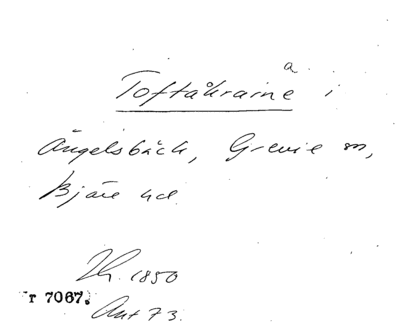 Toftåkrarna i
Ängelsbäck, Grevie sn,
Bjäre hd
1850
r 7067.
Ant 73.